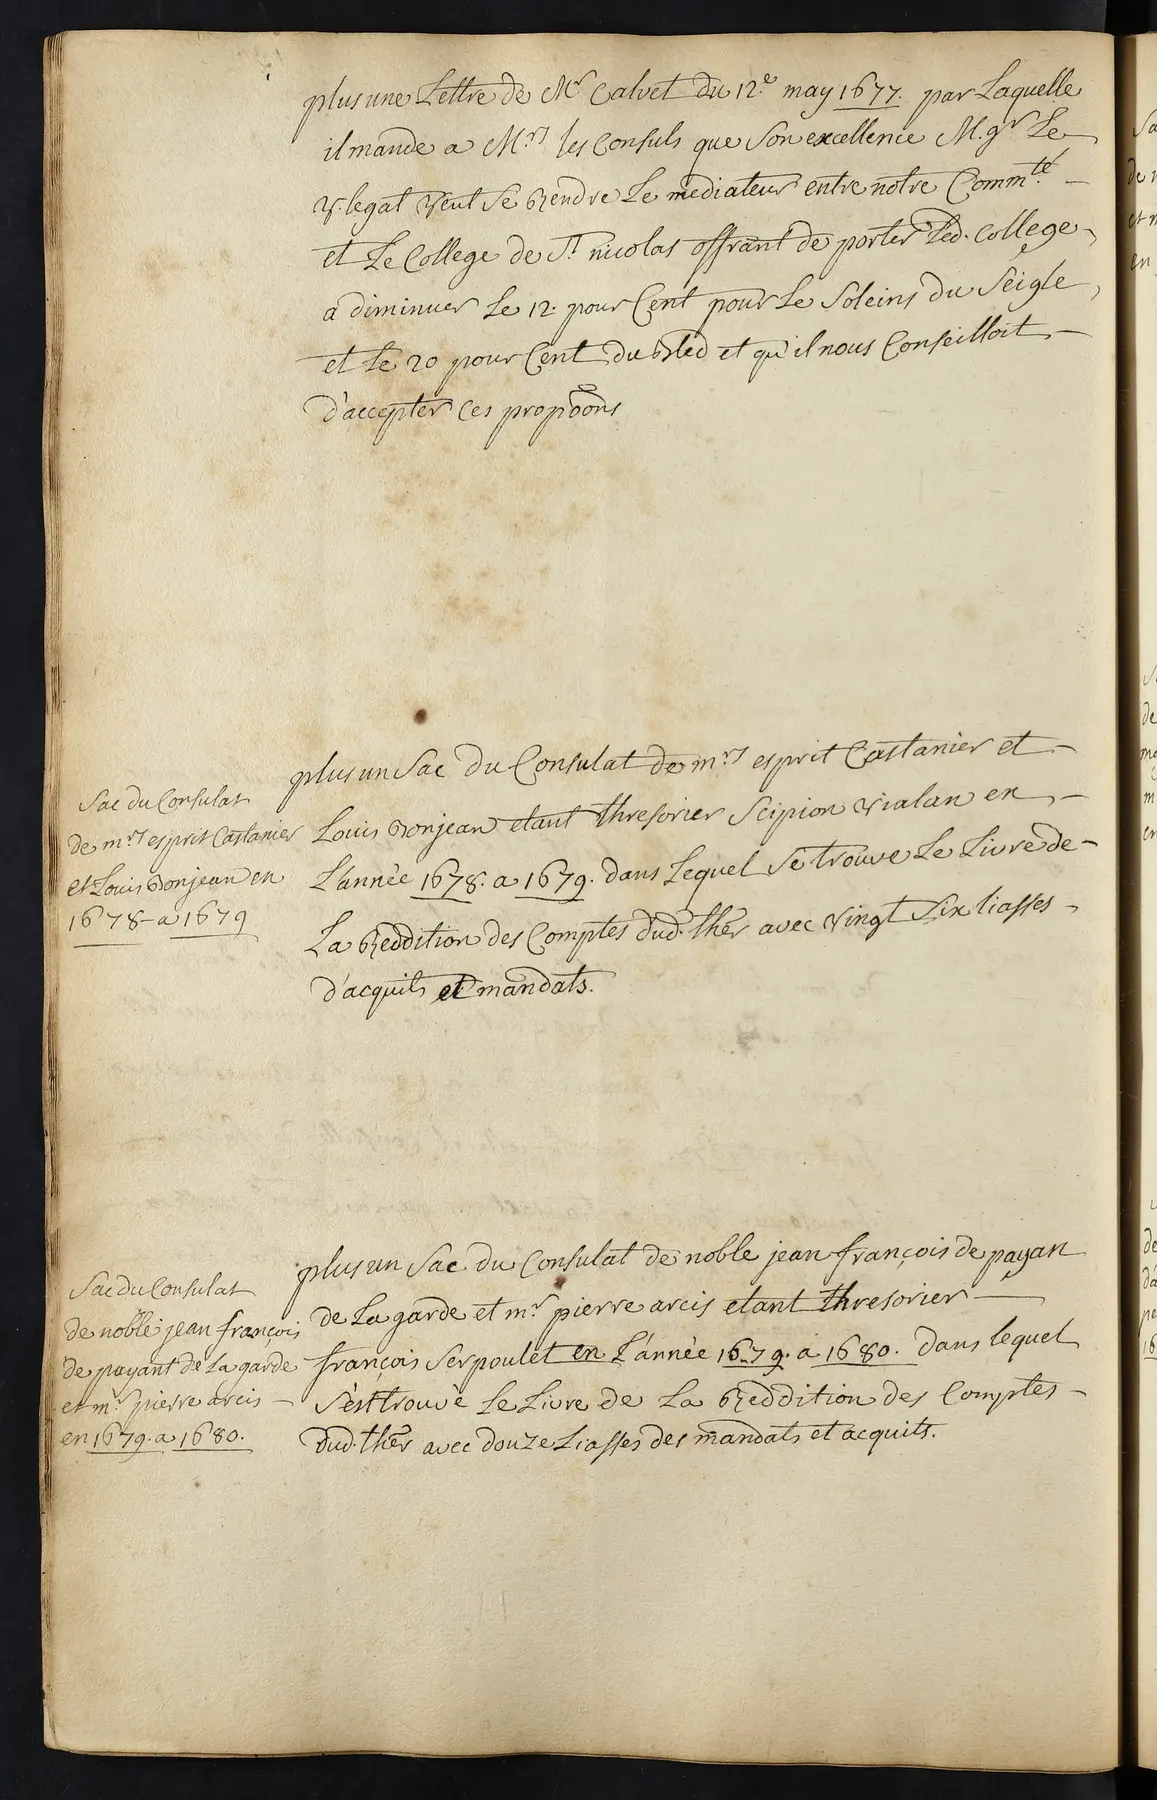 plus une Lettre de Mr Calvet du 12.e may 1677. par Laquelle
il mande a Mrs les Consuls que Son excellence M.gr Le
V. legat veut se Rendre Le mediateur entre notre Comm.té
et Le College de St nicolas offrant de porter led. College
a diminuer Le 12. pour Cent pour Le Soleins du Seigle
et Le 20 pour Cent du Bled et qu'il nous Conseilloit
d'accepter ces propõons
Sac du Consulat
de mrs esprit Castanier
et Louis Bonjean en
1678 a 1679
plus un Sac du Consulat de mrs esprit Castanier et
Louis Bonjean etant thresorier Scipion Vialan en
L'année 1678. a 1679. dans Lequel Se trouve Le Livre de
La Reddition des Comptes dud. ther avec vingt Six liasses
d'acquits et mandats.
Sac du Consulat
de noble jean françois
de payant de La garde
et mr pierre arcis
en 1679. a 1680.
plus un Sac du Consulat de noble jean françois de payan
de La garde et mr pierre arcis etant thresorier
françois Serpoulet en L'année 1679. a 1680. dans lequel
S'est trouvé Le Livre de La Reddition des Comptes
dud. ther avec douze Liasses des mandats et acquits.